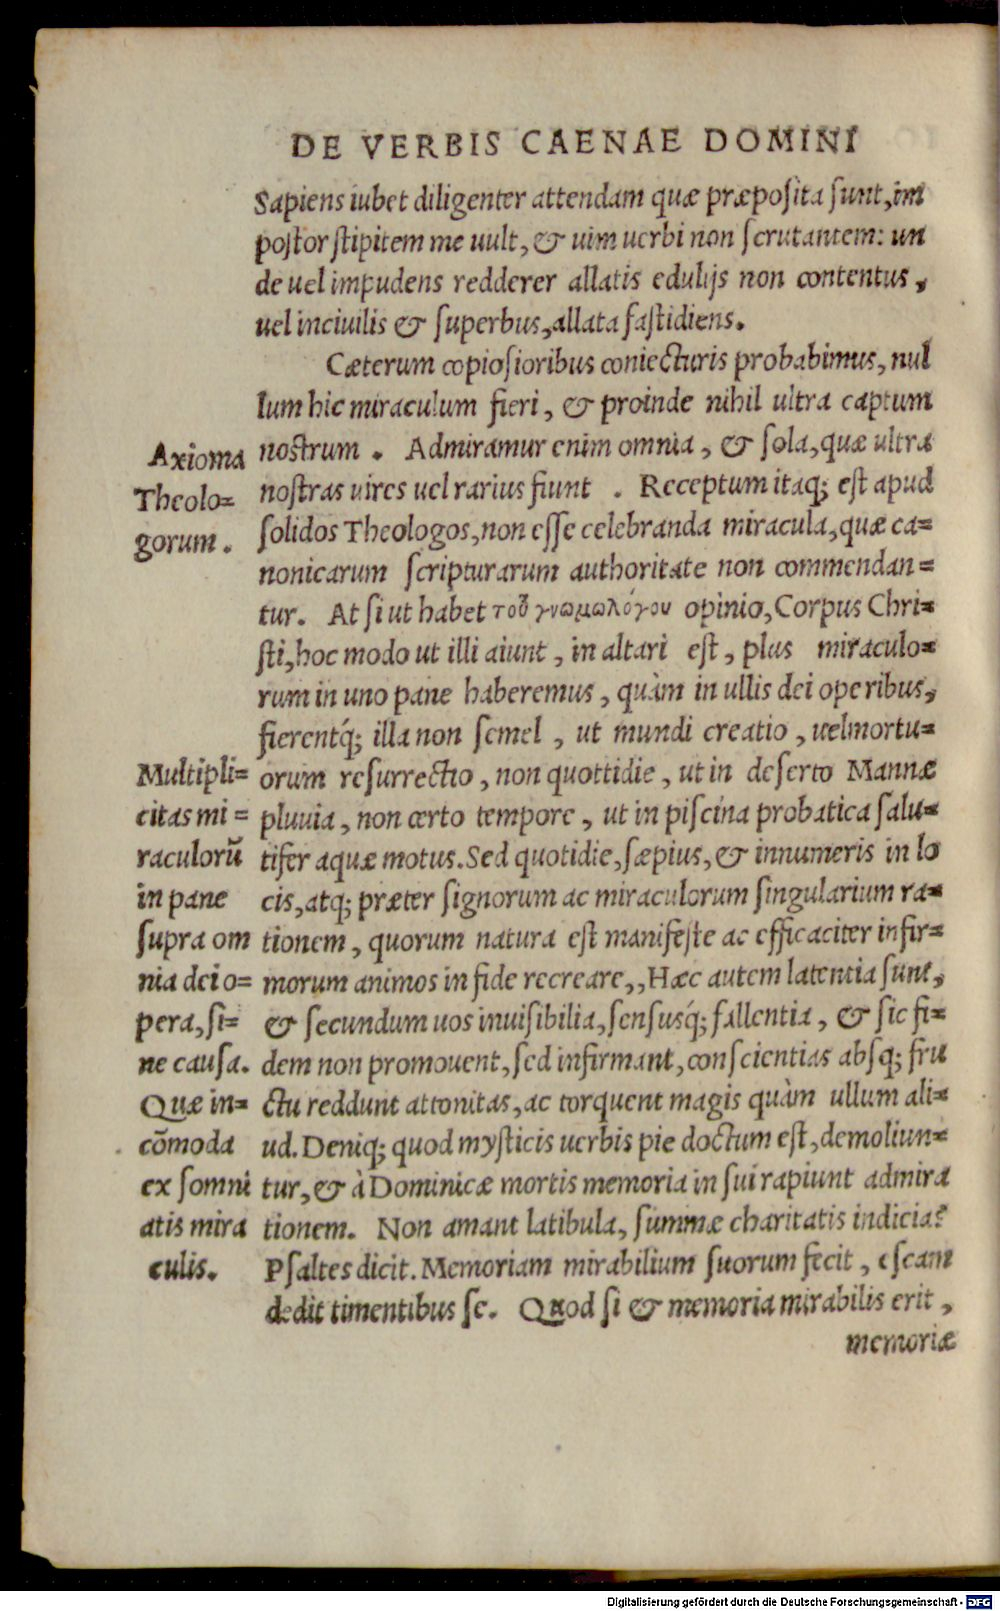 DE VERBIS CAENAE DOMINI
Sapiens iubet diligenter attendam quæ præposita sunt, im
postor stipitem me uult, & uim uerbi non scrutantem: un
de uel impudens redderer allatis edulijs non contentus,
uel inciuilis & superbus, allata fastidiens.
Cæterum copiosioribus coniecturis probabimus, nul
lum hic miraculum fieri, & proinde nihil ultra captum
nostrum. Admiramur enim omnia, & sola, quæ ultra
nostras uires uel rarius fiunt. Receptum itaq; est apud
solidos Theologos, non esse celebranda miracula, quæ ca=
nonicarum scripturarum authoritate non commendan=
tur. At si ut habet τοῦ γνωμωλόγου opinio, Corpus Chri=
sti, hoc modo ut illi aiunt, in altari est, plus miraculo=
rum in uno pane haberemus, quàm in ullis dei operibus,
fierentq́; illa non semel, ut mundi creatio, uel mortu=
orum resurrectio, non quottidie, ut in deserto Mannæ
pluuia, non certo tempore, ut in piscina probatica salu=
tifer aquæ motus. Sed quotidie, sæpius, & innumeris in lo
cis, atq; præter signorum ac miraculorum singularium ra=
tionem, quorum natura est manifeste ac efficaciter infir=
morum animos in fide recreare,, Hæc autem latentia sunt,
& secundum uos inuisibilia, sensusq́; fallentia, & sic fi=
dem non promouent, sed infirmant, conscientias absq; fru
ctu reddunt attonitas, ac torquent magis quàm ullum ali=
ud. Deniq; quod mysticis uerbis pie doctum est, demoliun=
tur, & à Dominicæ mortis memoria in sui rapiunt admira
tionem. Non amant latibula, summæ charitatis indicia?
Psaltes dicit. Memoriam mirabilium suorum fecit, escam
dedit timentibus se. Quod si & memoria mirabilis erit,
memoriæ
Axioma
Theolo=
gorum.
Multipli=
citas mi=
raculorũ
in pane
supra om
nia dei o=
pera, si=
ne causa.
Quæ in=
cõmoda
ex somni
atis mira
culis.
Digitalisierung gefördert durch die Deutsche Forschungsgemeinschaft - DFG